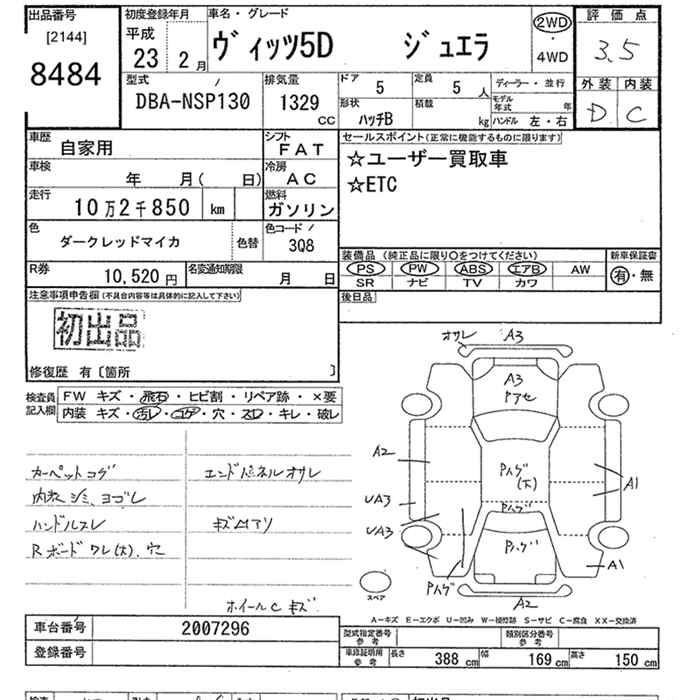 出品番号
[2144]
8484
初度登録年月
平成
23 2月
車名・グレード
ヴィッツ5D ジュエラ
2WD
・
4WD
評価点
3.5
外装 内装
D C
型式
DBA-NSP130
排気量
1329
CC
ドア
5
定員
5人
ディーラー・並行
形状
ハッチB
積載
kg
モデル年式 年
ハンドル 左・右
車歴
自家用
シフト
FAT
車検
年 月( 日)
冷房
AC
走行
10万2千850 km
燃料
ガソリン
色
ダークレッドマイカ
色替
色コード
3Q8
R券
10,520円
名変通知期限
月 日
セールスポイント(正常に機能するものに限ります)
☆ユーザー買取車
☆ETC
装備品(純正品に限り○をつけてください)
PS PW ABS エアB AW
SR ナビ TV カワ
新車保証書
有・無
後日品
注意事項申告欄(不具合内容等は具体的に記入して下さい)
初出品
修復歴 有〔箇所 〕
検査員記入欄
FW キズ・飛石・ヒビ割・リペア跡・×要
内装 キズ・汚レ・コゲ・穴・スレ・キレ・破レ
カーペットコゲ
内装シミ、ヨゴレ
ハンドルスレ
Rボードワレ(大)、穴
エンドパネルオサレ
ホイールCキズ
オサレ A3
A3
Pアセ
A2
Pハゲ
(大)
Pハゲ
A1
UA3
UA3
Pハゲ
A1
Pハゲ
A2
スペア
A-キズ E-エクボ U-凹み W-補修跡 S-サビ C-腐食 XX-交換済
車台番号
2007296
登録番号
型式指定番号
参考
類別区分番号
参考
車検証明用
参考
長さ
388 cm
幅
169 cm
高さ
150 cm